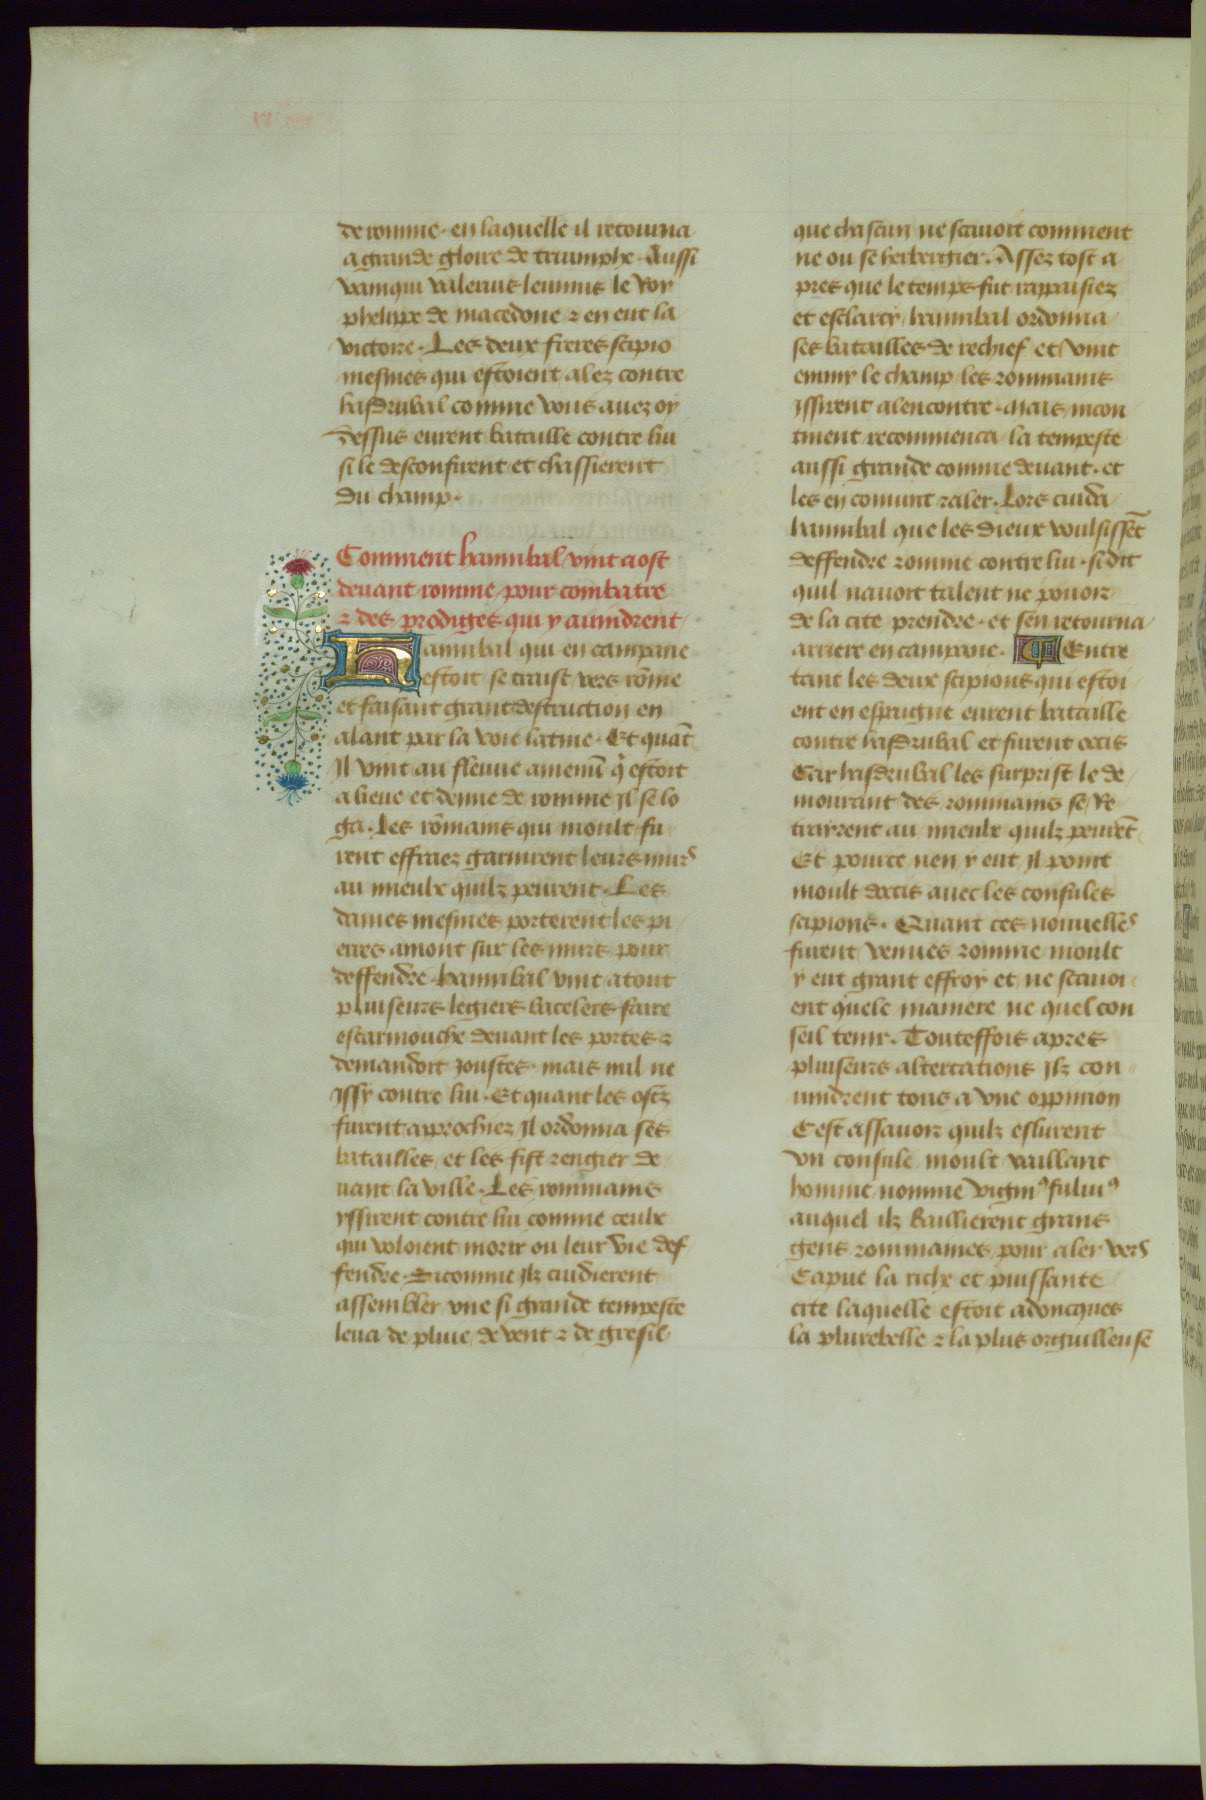 de romme. en laquelle il retourna
a grande gloire de triumphe. Aussi
vainqui valerius leuinus le Roy
phelippe de macedone ⁊ en eut la
victoire. Les deux freres scipio
mesmes qui estoient alez contre
hasdrubal comme vous auez oy
dessus eurent bataille contre lui
si le desconfirent et chassierent
du champ.
Comment hannibal vint a ost
deuant romme pour combatre
⁊ des prodiges qui y auindrent
Hannibal qui en campane
estoit se traist vers rōme
et faisant grant destruction en
alant par la voie latine. Et quāt
Il vint au fleuue amenū q̄ estoit
a lieue et demie de romme Il se lo
ga. Les rōmains qui moult fu
rent effraez garnirent leurs murs
au mieulx quilz peurent. Les
dames mesmes porterent les pi
erres amont sur les murs pour
deffendre. hannibal vint a tout
pluiseurs legiers bacelers faire
escarmouche deuant les portes ⁊
demandoit joustes. mais nul ne
Issy contre lui. Et quant les ostz
furent approchiez Il ordonna ses
batailles et les fist rengier de
uant la ville. Les rommains
yssirent contre lui comme ceulx
qui voloient morir ou leur vie def
fendre. Si comme ilz cuidierent
assembler vne si grande tempeste
leua de pluie de vent ⁊ de gresil
que chascun ne scauoit comment
ne ou se herbergier. Assez tost a
pres que le temps fut rappaisiez
et esclarcy hannibal ordonna
ses batailles de rechief et vint
emmy le champ les rommains
Issirent alencontre. Mais incon
tinent recommenca la tempeste
aussi grande comme deuant. et
les en conuint raler. Lors cuida
hannibal que les dieux voulsissēt
deffendre romme contre lui. si dit
quil nauoit talent ne pouoir
de la cite prendre. et sen retourna
arriere en campane. ¶ Entre
tant les deux scipions qui estoi
ent en espaigne eurent bataille
contre hasdrubal et furent occis
Car hasdrubal les surprist le de
mourant des rommains se Re
trayrent au mieulx quilz peurēt
Et pource nen y eut Il point
moult doccis auec les consules
scipions. Quant ces nouuelles
furent venues romme moult
y eut grant effroy et ne scauoi
ent quele maniere ne quel con
seil tenir. Touteffois apres
pluiseurs altercations ilz con
uindrent tous a vne oppinion
Cest assauoir quilz eslurent
vn consule moult vaillant
homme nomme Virginꝰ fuluiꝰ
auquel ilz baillierent grans
gens rommaines pour aler vers
Capue la riche et puissante
cite laquelle estoit adoncques
la plusbelle ⁊ la plus orguilleuse